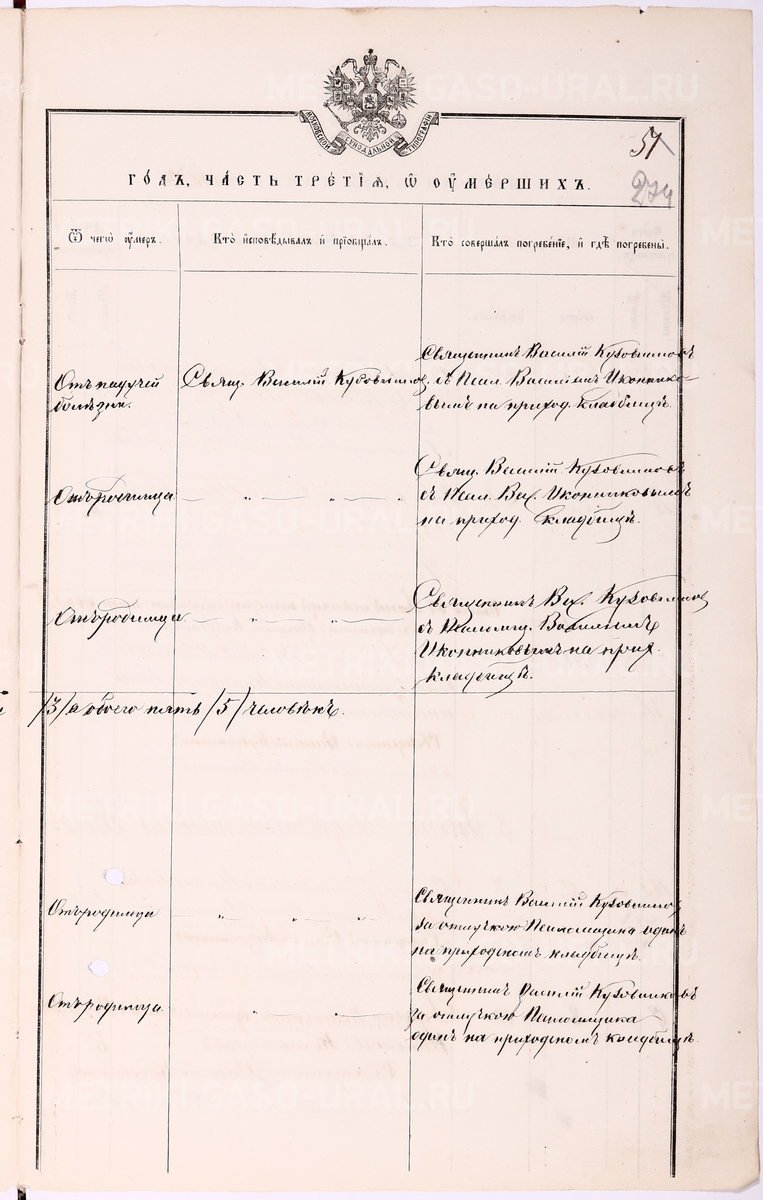 МОСКОВСКОЙ СѴНОДАЛЬНОЙ ТИПОГРАФІИ
51
274
ГО́ДЪ, ЧА́СТЬ ТРЕ́ТІѦ, Ѡ҆ ОУ҆МЕ́РШИХЪ.
Ѿ чегѡ̀ оу҆́меръ.
Кто̀ и҆сповѣ́дывалъ и҆ прїѻбща́лъ.
Кто̀ соверша́лъ погребе́нїе, и҆ гдѣ̀ погребены̀.
Отъ падучей
болѣзни.
Свящ. Василій Кузовников
Священникъ Василій Кузовниковъ
съ Псал. Василіемъ Иконнико-
вымъ на приход. кладбищѣ.
Отъ родимца — „ — „ — „
Свящ. Василій Кузовниковъ
съ Псал. Вас. Иконниковымъ
на приход. кладбищѣ.
Отъ родимца — „ — „ —
Священникъ Вас. Кузовников
съ Псаломщ. Василіемъ
Иконниковымъ на прих.
кладбищѣ.
/3/ а обоего пять /5/ человѣкъ.
Отъ родимца „ „ „
Священникъ Василій Кузовников
за отлучкою Псаломщика одинъ
на приходскомъ кладбищѣ.
Отъ родимца „ „
Священникъ Василій Кузовниковъ
за отлучкою Псаломщика
одинъ на приходскомъ кладбищѣ.